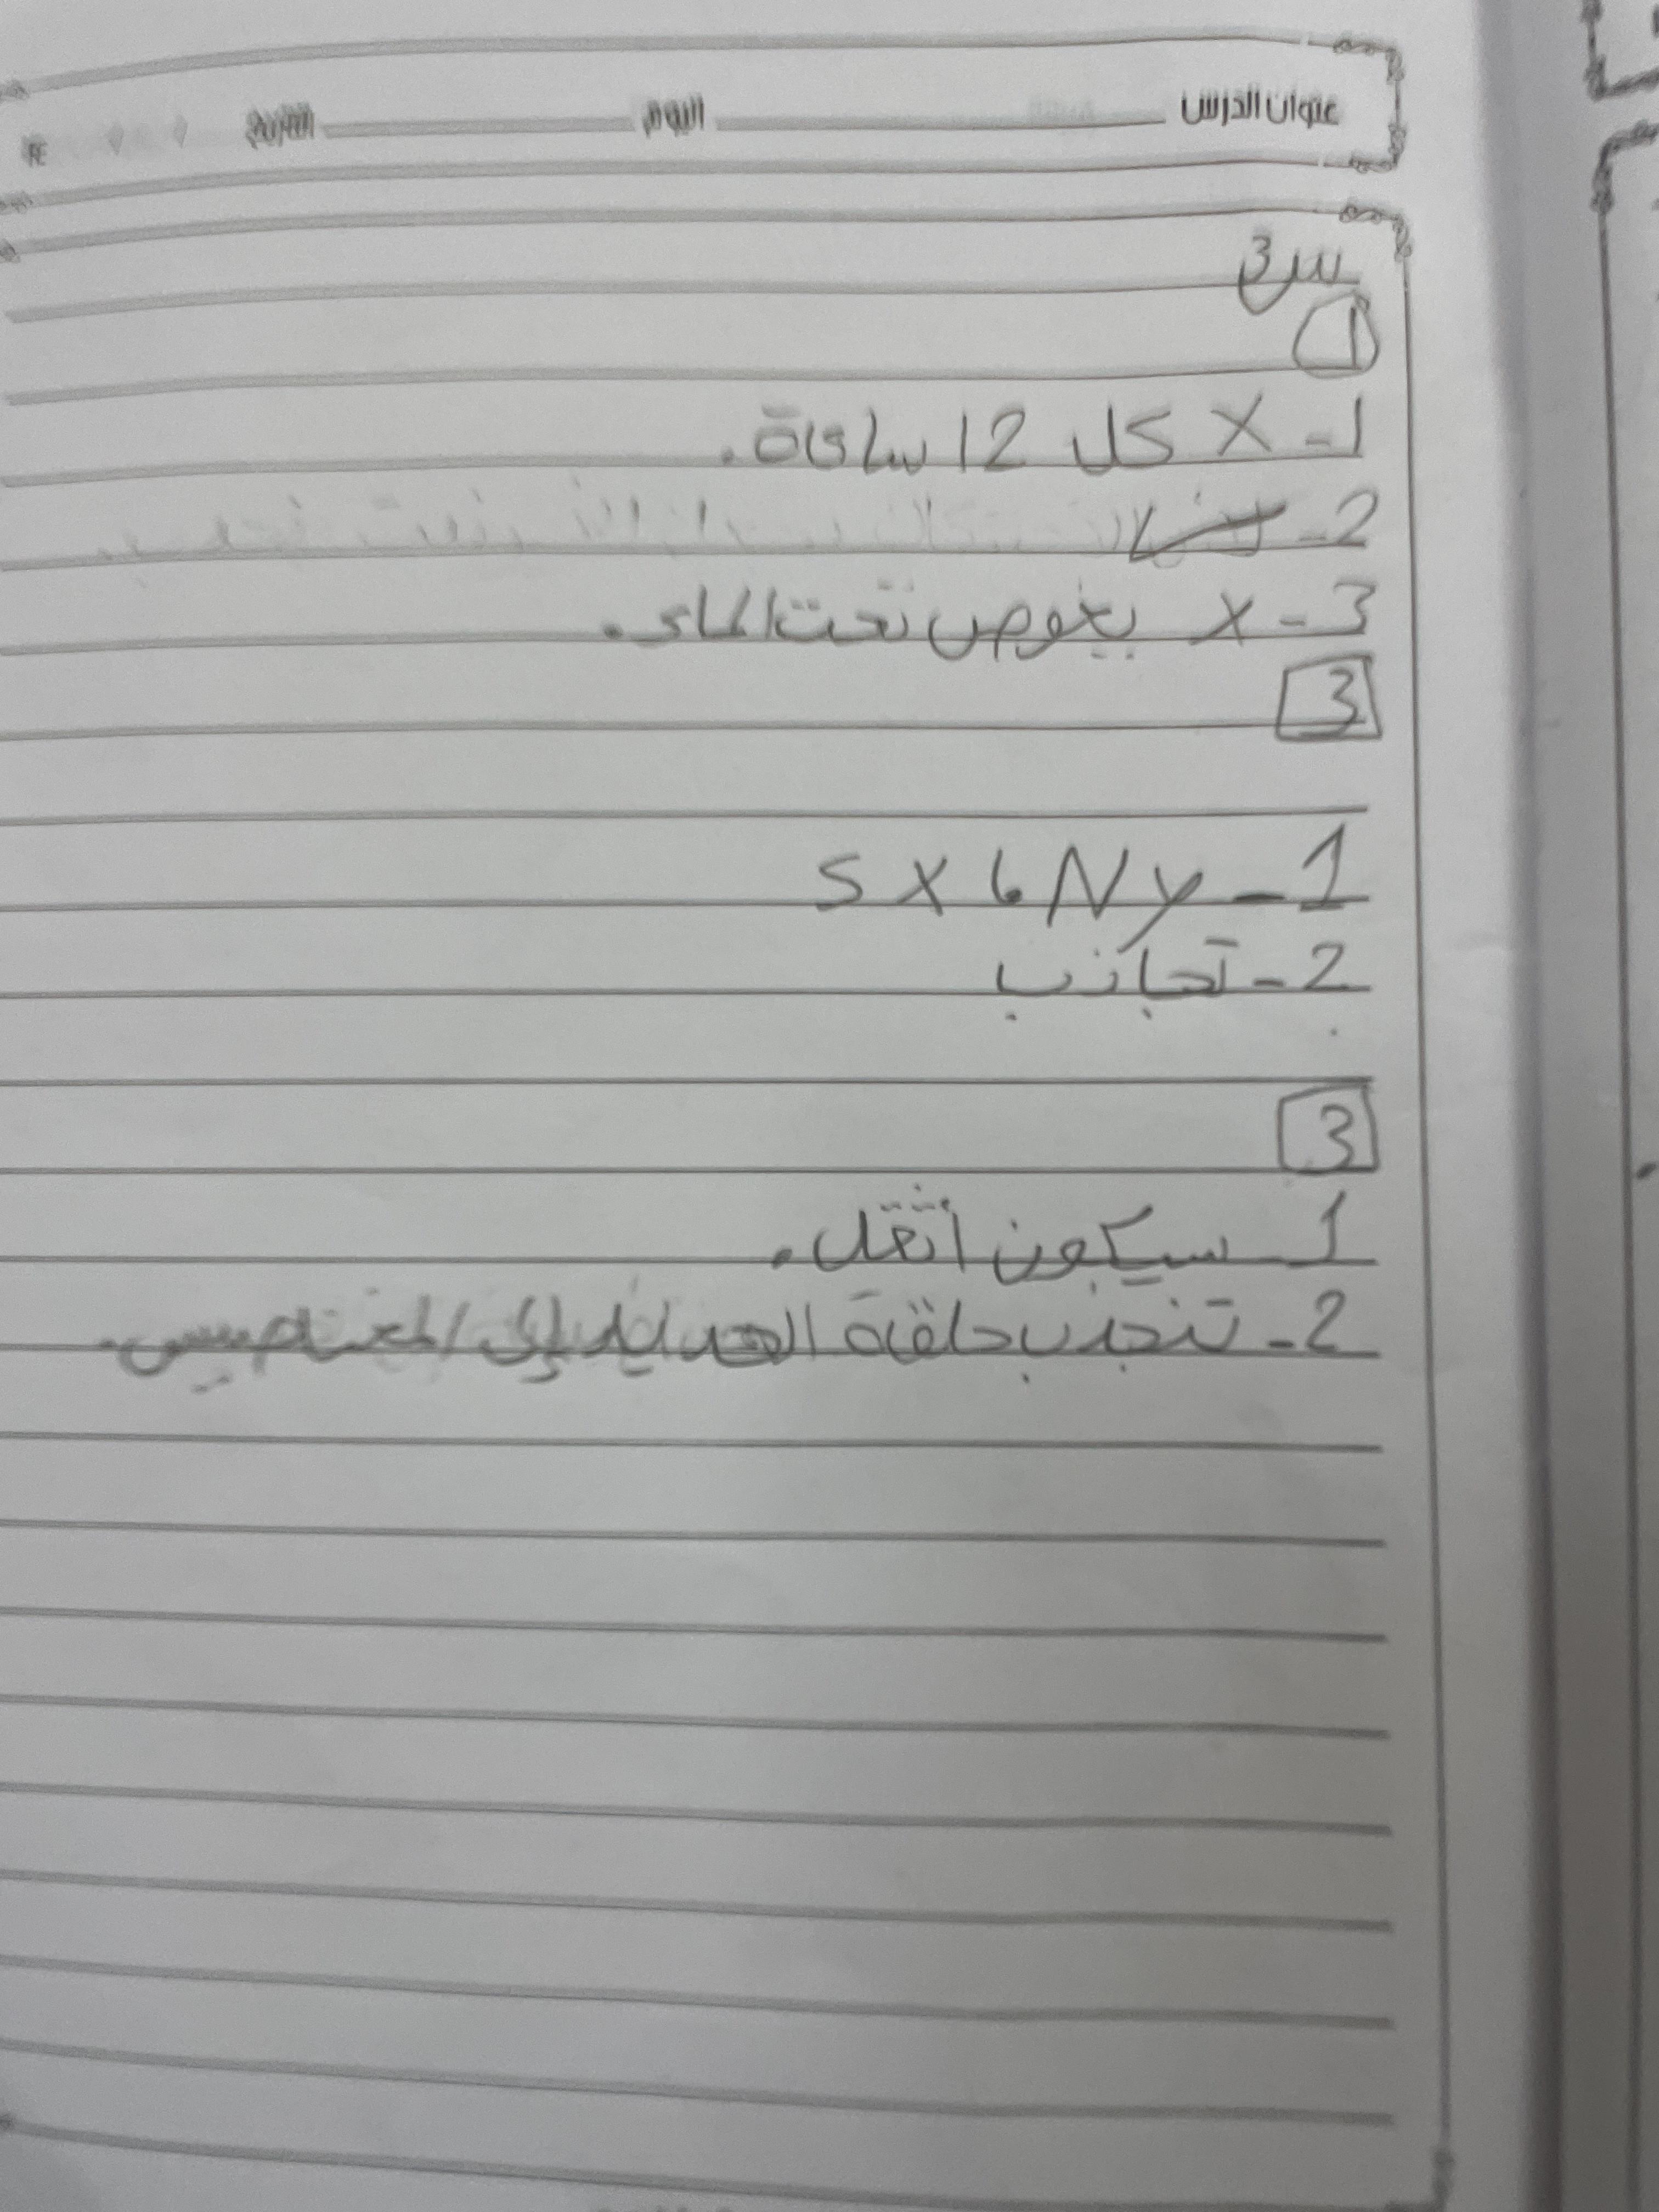 عنوان الدرس اليوم التاريخ
س3
1
1- X كل 12 ساعة.
2-
3- X يغوص تحت الماء.
3
1- y N ، X S
2- تجاذب
3
1 سيكون أثقل.
2- تنجذب حلقة الحديد إلى المغناطيس.